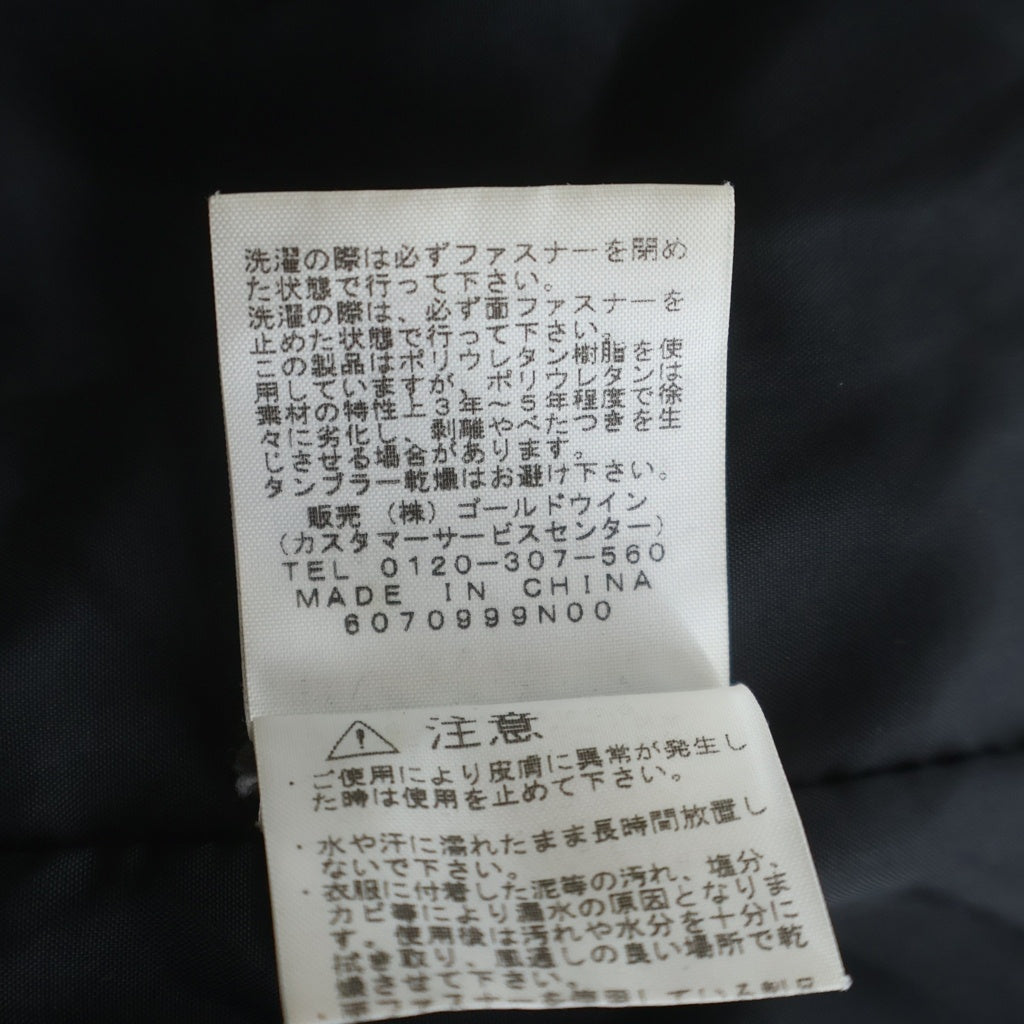 洗濯の際は必ずファスナーを閉め
た状態で行って下さい。
洗濯の際は、必ず面ファスナーを
止めた状態で行って下さい。
この製品はポリウレタン樹脂を使
用しています。ポリウレタンは
素材の特性上、3年～5年程度で徐
々に劣化し、剥離やべたつきを生
じさせる場合があります。
タンブラー乾燥はお避け下さい。
販売 (株) ゴールドウイン
(カスタマーサービスセンター)
TEL 0120-307-560
MADE IN CHINA
6070999N00
注意
・ご使用により皮膚に異常が発生し
た時は使用を止めて下さい。
・水や汗に濡れたまま長時間放置し
ないで下さい。
・衣服に付着した泥等の汚れ、塩分、
カビ等により漏水の原因となりま
す。使用後は汚れや水分を十分に
拭き取り、風通しの良い場所で乾
燥させて下さい。
ファスナーを使用している製品